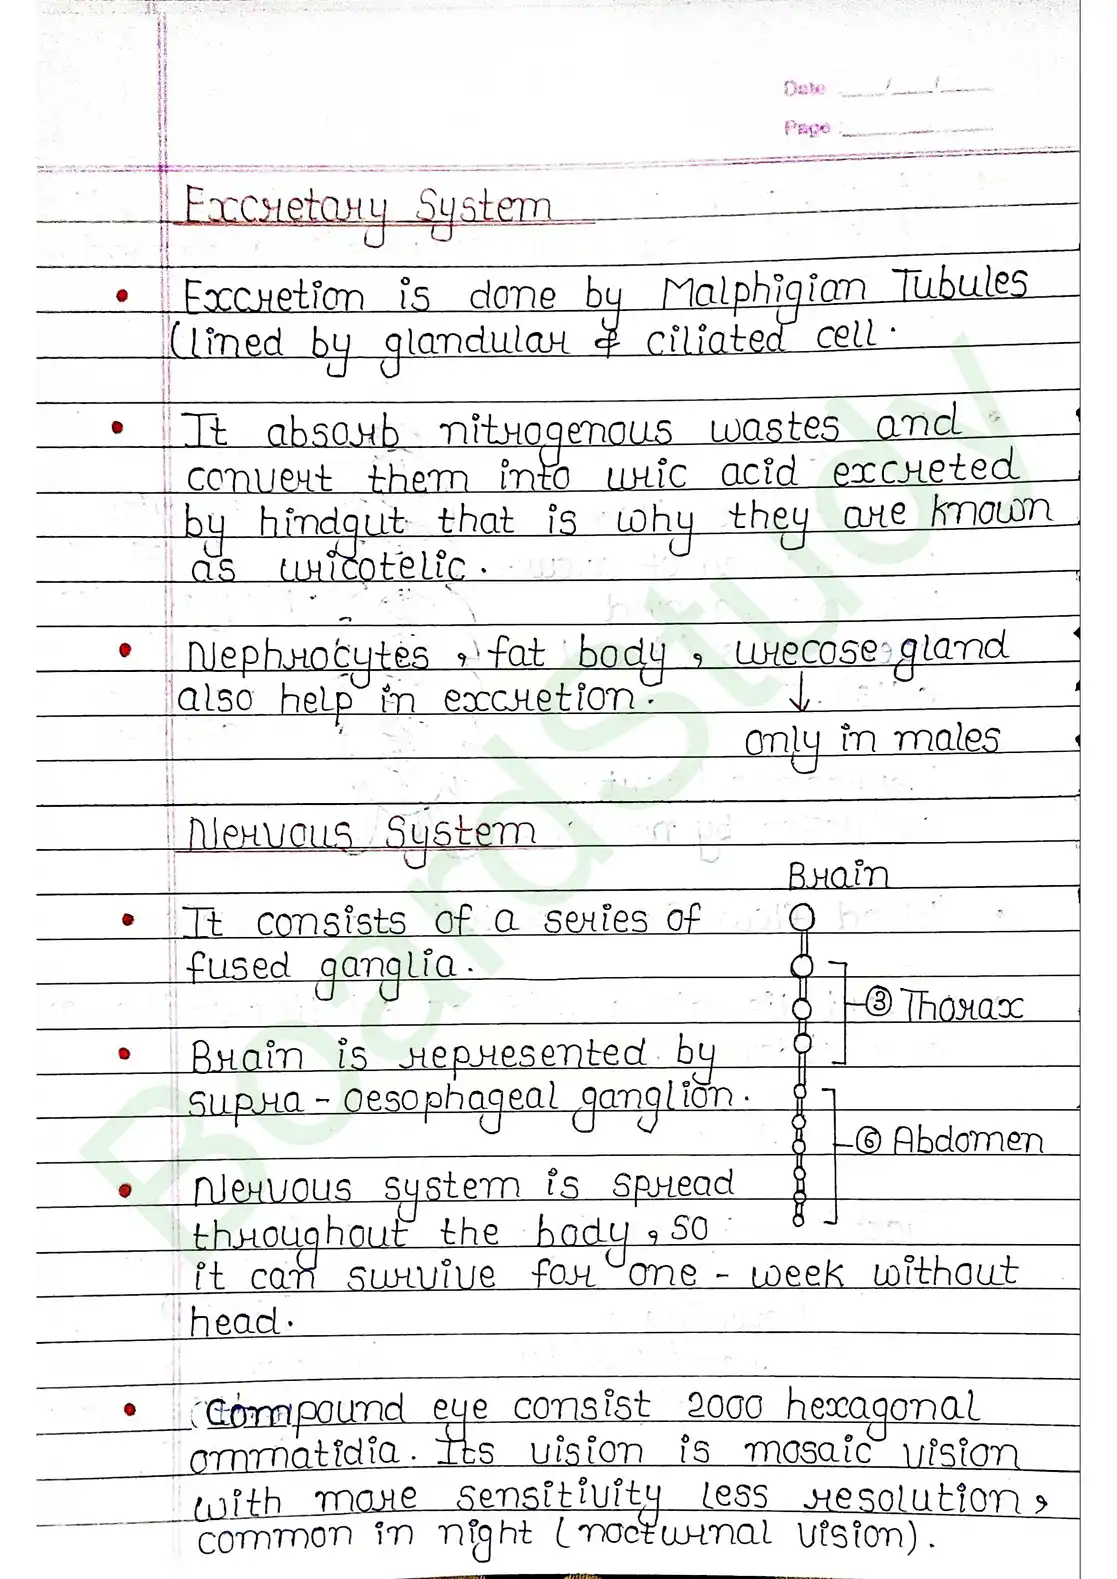 Date : ___/___/___
Page : ___
Excretary System
• Excretion is done by Malphigian Tubules
(lined by glandular & ciliated cell.
• It absorb nitrogenous wastes and
convert them into uric acid excreted
by hindgut that is why they are known
as uricotelic.
• Nephrocytes, fat body, urecose gland
also help in excretion. ↓
only in males
Nervous System
Brain
• It consists of a series of
fused ganglia.
③ Thorax
• Brain is represented by
supra-oesophageal ganglion.
⑥ Abdomen
• Nervous system is spread
throughout the body, so
it can survive for one-week without
head.
• Compound eye consist 2000 hexagonal
ommatidia. Its vision is mosaic vision
with more sensitivity less resolution,
common in night (nocturnal vision).
BoardStudy